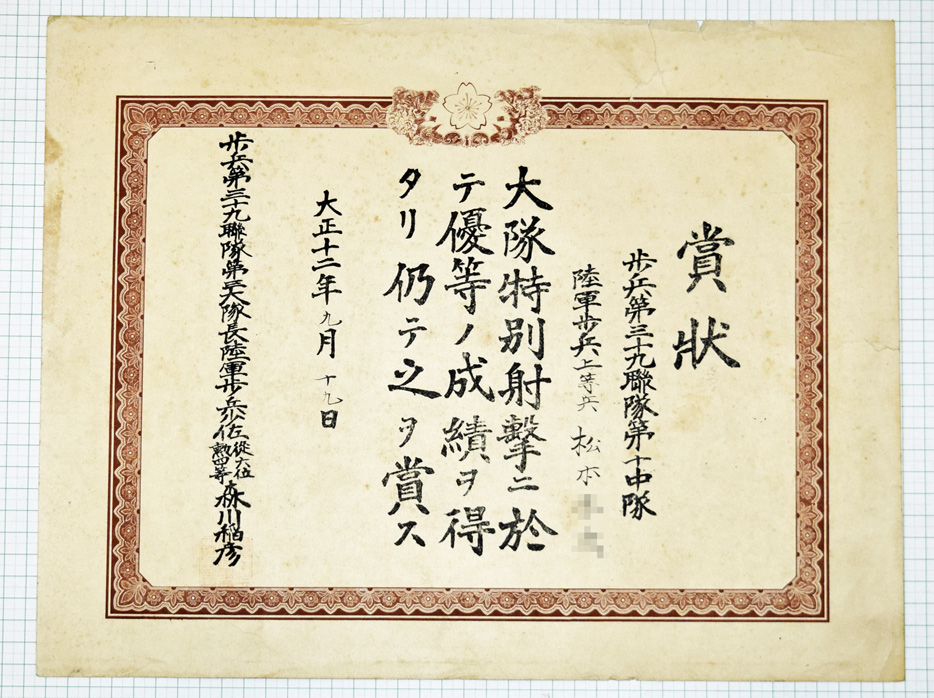 賞状
歩兵第三十九聯隊第十中隊
陸軍歩兵上等兵 松本
大隊特別射撃ニ於
テ優等ノ成績ヲ得
タリ仍テ之ヲ賞ス
大正十二年九月十九日
歩兵第三十九聯隊第三大隊長陸軍歩兵少佐従六位勲四等森川稲彦